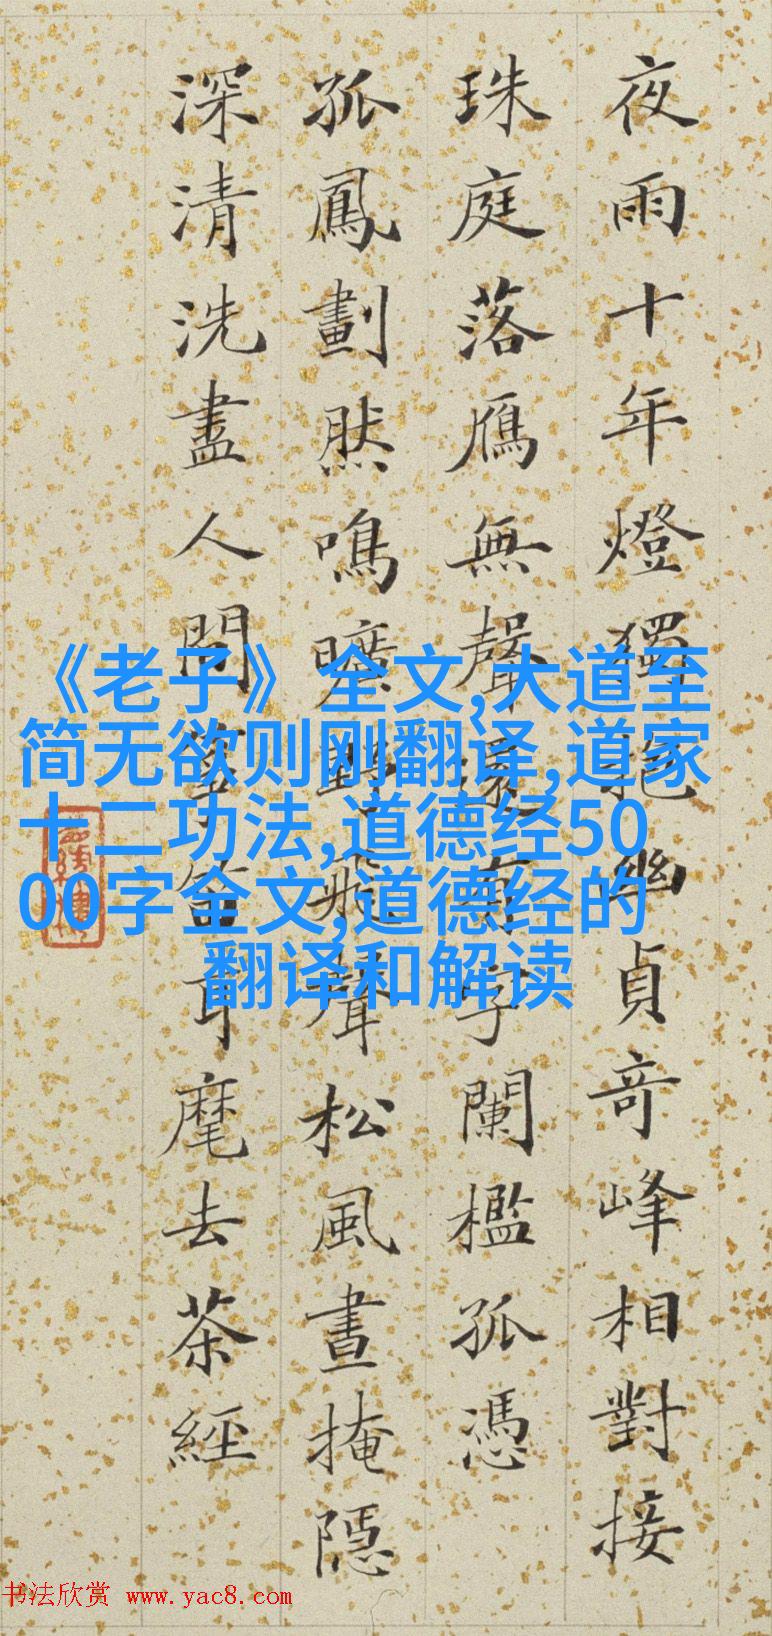 夜雨十年燈獨抱幽貞奇峰相對接
珠庭落鴈無聲還有字闌檻孤憑
孤鳳劃然鳴曠野飛聲松風晝掩隱
深清洗盡人間箏笛耳麾去茶經
《老子》全文,大道至
简无欲则刚翻译,道家
十二功法,道德经50
00字全文,道德经的
翻译和解读
书法欣赏 www.yac8.com